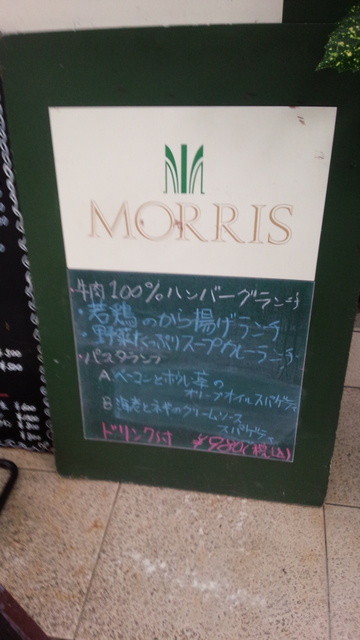 MORRIS
牛肉100%ハンバーグランチ
・若鶏のから揚げランチ
野菜たっぷりスープカレーランチ
・パスタランチ
A ベーコンと
オリーブオイルスパゲティ
B 海老とネギのクリームソース
スパゲティ
ドリンク付 ¥980(税込)